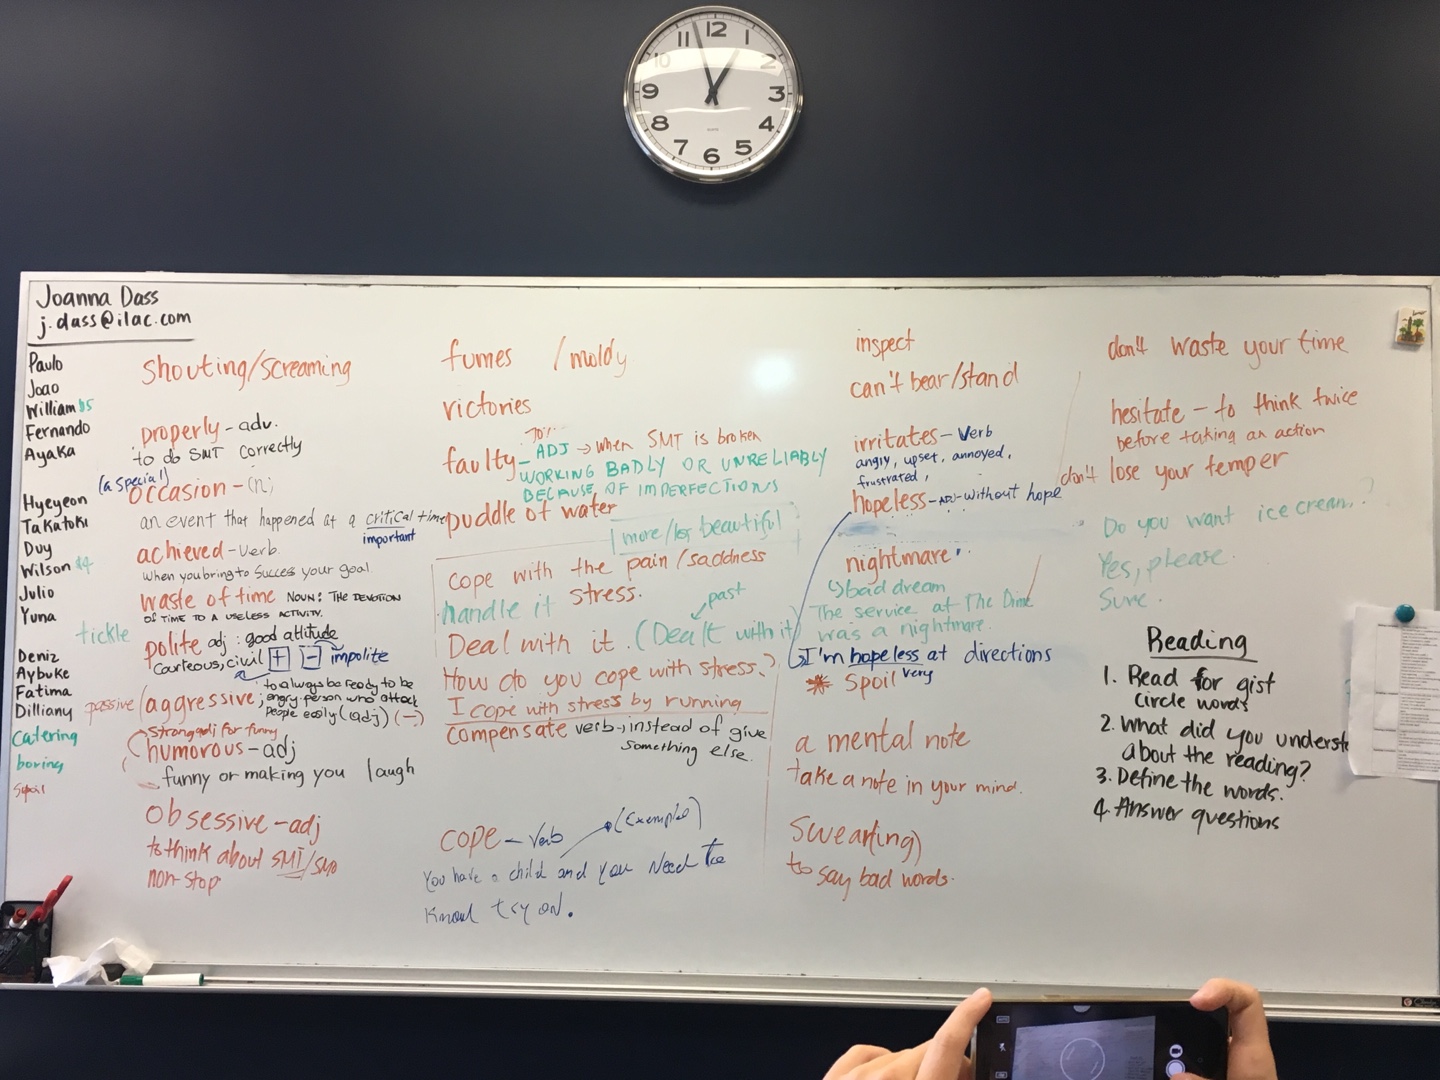 12
11
1
10
2
9
3
8
4
7
5
6
Joanna Dass
j.dass@ilac.com
Paulo
Joao
William
Fernando
Ayaka
Hyeyeon
Takatoki
Duy
Wilson
Julio
Yuna
tickle
Deniz
Aybuke
Fatima
Dilliany
Catering
boring
Spoil
shouting/screaming
properly - adv.
to do SMT correctly
(a special)
occasion - (n)
an event that happened at a critical time
important
achieved - verb.
when you bring to success your goal.
waste of time NOUN: THE DEVOTION
OF TIME TO A USELESS ACTIVITY.
polite adj: good attitude
Courteous, civil + - impolite
passive/aggressive; to always be ready to be
angry person who attack
people easily (adj) (-)
Strong adj for funny
humorous - adj
funny or making you laugh
obsessive - adj
to think about SMT/SMO
non-stop
fumes / moldy
victories
faulty - ADJ → when SMT is broken
WORKING BADLY OR UNRELIABLY
BECAUSE OF IMPERFECTIONS
puddle of water
more/less beautiful
cope with the pain/saddness
handle it stress.
past
Deal with it. (Dealt with it)
How do you cope with stress?
I cope with stress by running
compensate verb -, instead of give
something else.
cope - Verb (Example)
You have a child and you Need to
know try on.
inspect
can't bear/stand
irritates - verb
angry, upset, annoyed,
frustrated,
hopeless - ADJ - without hope
nightmare
bad dream
The service at The Dime
was a nightmare.
I'm hopeless at directions
Spoil very
a mental note
take a note in your mind.
swear(ing)
to say bad words.
don't waste your time
hesitate - to think twice
before taking an action
don't lose your temper
Do you want ice cream?
Yes, please.
Sure.
Reading
1. Read for gist
circle words
2. What did you underst
about the reading?
3. Define the words.
4. Answer questions